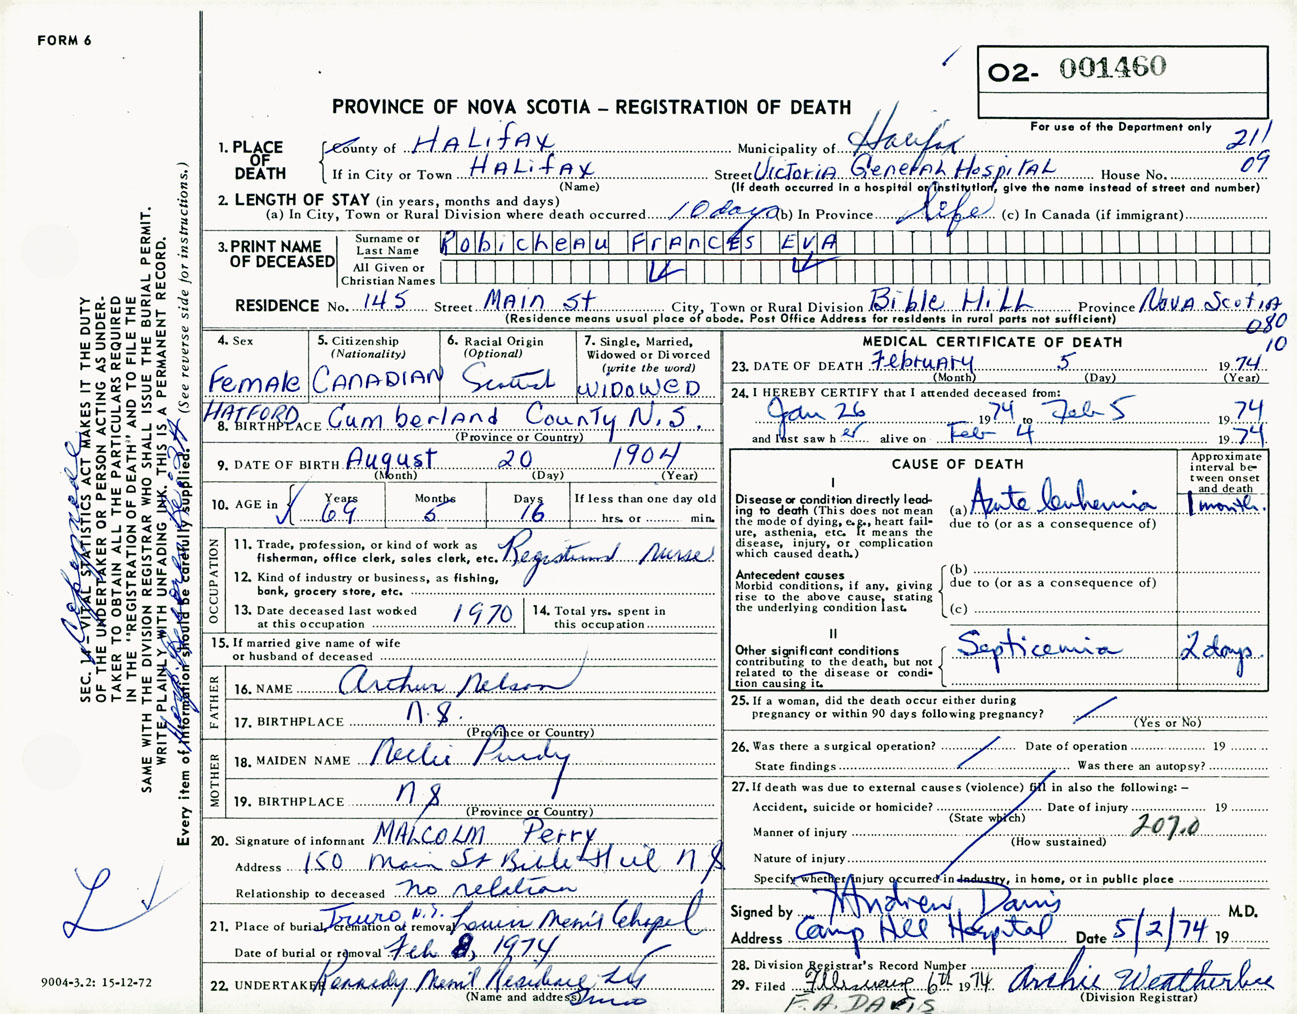 FORM 6
02- 001460
PROVINCE OF NOVA SCOTIA – REGISTRATION OF DEATH
For use of the Department only
211
09
1. PLACE OF DEATH
County of HALifAX Municipality of Halifax
If in City or Town HALifAX Street Victoria General Hospital House No.
(Name) (If death occurred in a hospital or institution, give the name instead of street and number)
2. LENGTH OF STAY (in years, months and days)
(a) In City, Town or Rural Division where death occurred 10 days (b) In Province life (c) In Canada (if immigrant)
3. PRINT NAME OF DECEASED
Surname or Last Name Robicheau Frances EVA
All Given or Christian Names
RESIDENCE No. 145 Street MAin St City, Town or Rural Division Bible Hill Province Nova Scotia
(Residence means usual place of abode. Post Office Address for residents in rural parts not sufficient)
080
10
4. Sex
Female
5. Citizenship
(Nationality)
CANADIAN
6. Racial Origin
(Optional)
Scotish
7. Single, Married, Widowed or Divorced
(write the word)
WIDOWED
HATFORD
8. BIRTHPLACE Cumberland County N.S.
(Province or Country)
9. DATE OF BIRTH August 20 1904
(Month) (Day) (Year)
10. AGE in Years 69 Months 5 Days 16 If less than one day old
hrs. or min.
OCCUPATION
11. Trade, profession, or kind of work as fisherman, office clerk, sales clerk, etc. Registered nurse
12. Kind of industry or business, as fishing, bank, grocery store, etc.
13. Date deceased last worked at this occupation 1970
14. Total yrs. spent in this occupation
15. If married give name of wife
or husband of deceased
FATHER
16. NAME Arthur Nelson
17. BIRTHPLACE N.S.
(Province or Country)
MOTHER
18. MAIDEN NAME Nellie Purdy
19. BIRTHPLACE N S
(Province or Country)
20. Signature of informant MALCOLM Perry
Address 150 Main St Bible Hill N S
Relationship to deceased no relation
Truro N.S.
21. Place of burial, cremation or removal Mem'l Chapel
Date of burial or removal Feb 8, 1974
22. UNDERTAKER Kennedy Mem'l Residence Ltd
(Name and address) Truro
MEDICAL CERTIFICATE OF DEATH
23. DATE OF DEATH February 5 1974
(Month) (Day) (Year)
24. I HEREBY CERTIFY that I attended deceased from:
Jan 26 1974 to Feb 5 1974
and last saw her alive on Feb 4 1974
CAUSE OF DEATH
Approximate interval between onset and death
I
Disease or condition directly leading to death (This does not mean the mode of dying, e.g., heart failure, asthenia, etc. It means the disease, injury, or complication which caused death.)
(a) Acute leukemia 1 month.
due to (or as a consequence of)
Antecedent causes
Morbid conditions, if any, giving rise to the above cause, stating the underlying condition last.
(b)
due to (or as a consequence of)
(c)
II
Other significant conditions
contributing to the death, but not related to the disease or condition causing it.
Septicemia 2 days.
25. If a woman, did the death occur either during pregnancy or within 90 days following pregnancy?
(Yes or No)
26. Was there a surgical operation? Date of operation 19
State findings Was there an autopsy?
27. If death was due to external causes (violence) fill in also the following: –
Accident, suicide or homicide? Date of injury 19
(State which)
Manner of injury 207.0
(How sustained)
Nature of injury
Specify whether injury occurred in industry, in home, or in public place
Signed by F Andrew Davis M.D.
Address Camp Hill Hospital Date 5/2/74 19
28. Division Registrar's Record Number
29. Filed February 6th 1974 Archie Weatherbee
(Division Registrar)
F.A. DAVIS
SEC. 14 – VITAL STATISTICS ACT MAKES IT THE DUTY
OF THE UNDERTAKER OR PERSON ACTING AS UNDER-
TAKER TO OBTAIN ALL THE PARTICULARS REQUIRED
IN THE "REGISTRATION OF DEATH" AND TO FILE THE
SAME WITH THE DIVISION REGISTRAR WHO SHALL ISSUE THE BURIAL PERMIT.
WRITE PLAINLY WITH UNFADING INK. THIS IS A PERMANENT RECORD.
Every item of information should be carefully supplied. (See reverse side for instructions.)
9004-3.2: 15-12-72